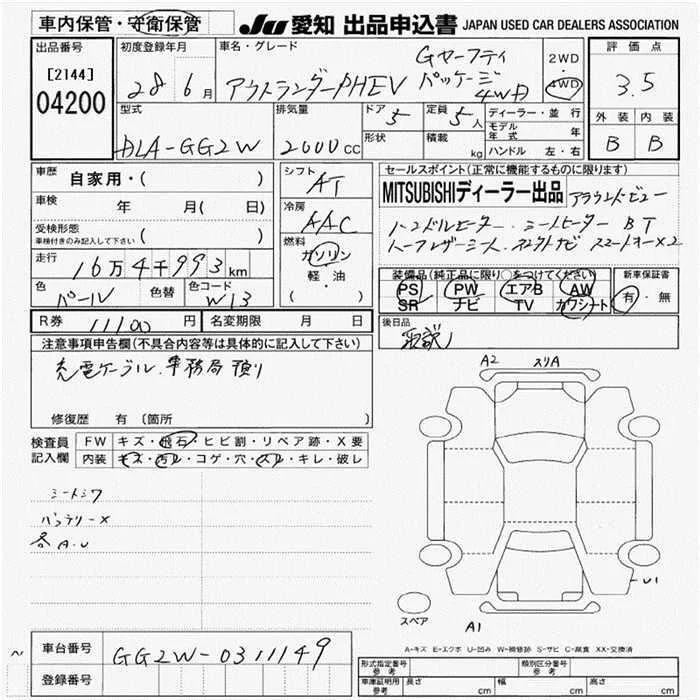 車内保管・守衛保管
JU 愛知 出品申込書 JAPAN USED CAR DEALERS ASSOCIATION
出品番号
[2144]
04200
初度登録年月
28 6月
車名・グレード
アウトランダーPHEV
Gセーフティ
パッケージ
4WD
2WD
・
4WD
評価点
3.5
外装 内装
B B
型式
DLA-GG2W
排気量
2000cc
ドア 5
定員 5人
形状
積載 kg
ディーラー・並行
モデル年式 年
ハンドル 左・右
車歴 自家用・( )
車検 年 月( 日)
受検形態
車検付きのみ記入して下さい ( )
走行 16万4千993km
色 パール 色替 色コード W13
シフト AT
冷房 AAC
燃料
ガソリン
軽・油
( )
セールスポイント(正常に機能するものに限ります)
MITSUBISHIディーラー出品 アラウンドビュー
ハンドルヒーター シートヒーター BT
ハーフレザーシート スマートキー×2
装備品(純正品に限り○をつけてください)
PS PW エアB AW
SR ナビ TV カワシート
新車保証書
有・無
R券 11100円 名変期限 月 日
後日品
取説1
注意事項申告欄(不具合内容等は具体的に記入して下さい)
充電ケーブル.事務局預り
修復歴 有 〔箇所
検査員記入欄
FW キズ・飛石・ヒビ割・リペア跡・X要
内装 キズ・汚レ・コゲ・穴・スレ・キレ・破レ
シートシワ
バッテリー×
各A.U
A2 スリA
U1
A1
スペア
A-キズ E-エクボ U-凹み W-補修跡 S-サビ C-腐食 XX-交換済
車台番号 GG2W-0311149
登録番号
形式指定番号 参考
類別区分番号 参考
車庫証明用 参考 長さ cm 幅 cm 高さ cm